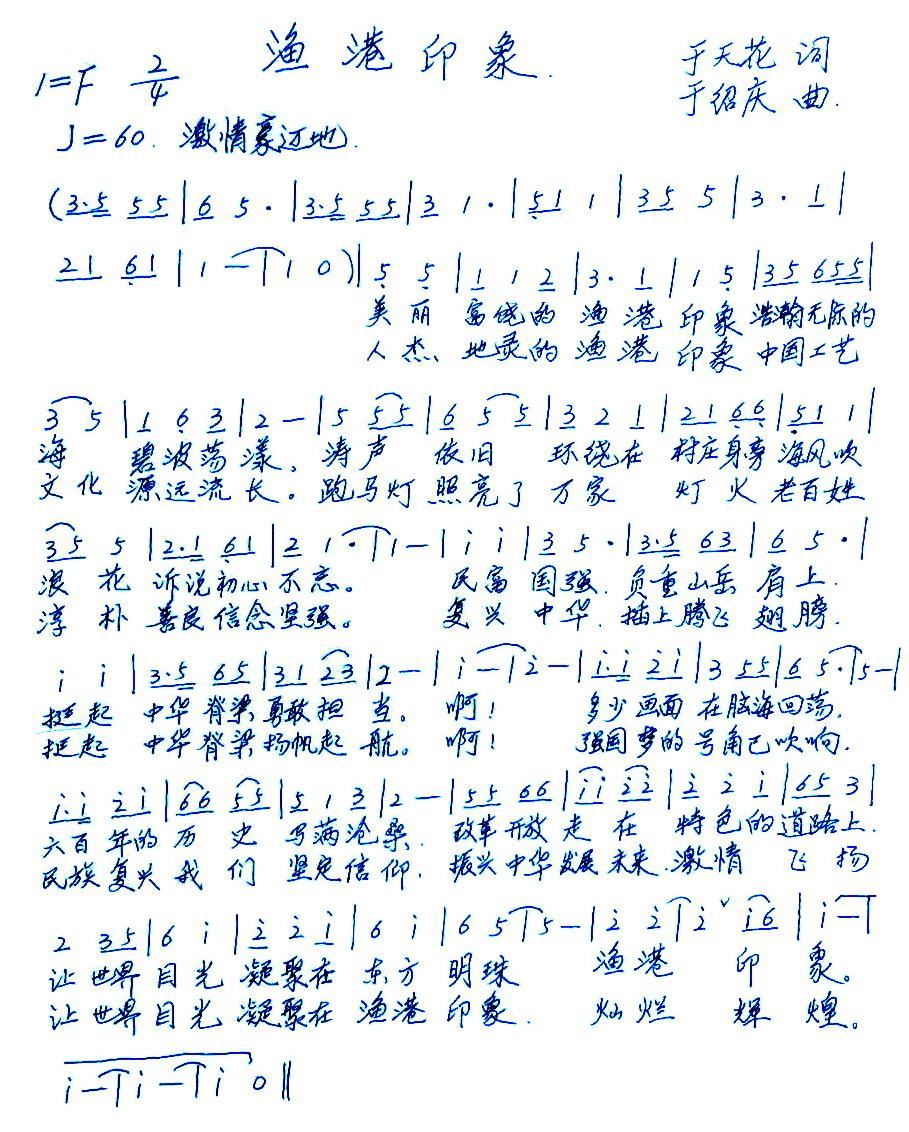 渔港印象.
1=F 2/4
于天花 词
于绍庆 曲.
J=60. 激情豪迈地.
(3·5 55|6 5·|3·5 55|3 1·|51 1|35 5|3· 1|
21 61|1 -|1 0)|5 5|1 1 2|3· 1|1 5|35 655|
美丽 富饶的 渔港 印象 浩瀚无际的
人杰 地灵的 渔港 印象 中国工艺
3 5|1 6 3|2 -|5 55|6 5 5|3 2 1|21 66|51 1|
海 碧波荡漾、涛声 依旧 环绕在 村庄身旁 海风吹
文化 源远流长。跑马灯 照亮了 万家 灯火 老百姓
35 5|2·1 61|2 1·|1 -|i i|3 5·|3·5 63|6 5·|
浪花 诉说初心不忘。 民富 国强. 负重山岳 肩上.
淳朴 善良信念坚强。 复兴 中华. 插上腾飞 翅膀.
i i|3·5 65|31 23|2 -|i -|2 -|i·i 2i|3 55|6 5·|5 -|
挺起 中华脊梁勇敢担当。啊! 多少画面 在脑海回荡.
挺起 中华脊梁扬帆起航。啊! 强国梦的 号角已吹响.
i·i 2i|66 55|5 1 3|2 -|55 66|ii 22|2 2 i|65 3|
六百年的历史 写满沧桑. 改革开放 走在 特色的道路上.
民族复兴我们 坚定信仰. 振兴中华发展未来.激情 飞扬
2 35|6 i|2 2 i|6 i|6 5|5 -|2 2|2 ˅ i6|i -|
让世界目光 凝聚在 东方 明珠 渔港 印 象。
让世界目光 凝聚在 渔港 印象. 灿烂 辉 煌。
i -|i -|i 0‖